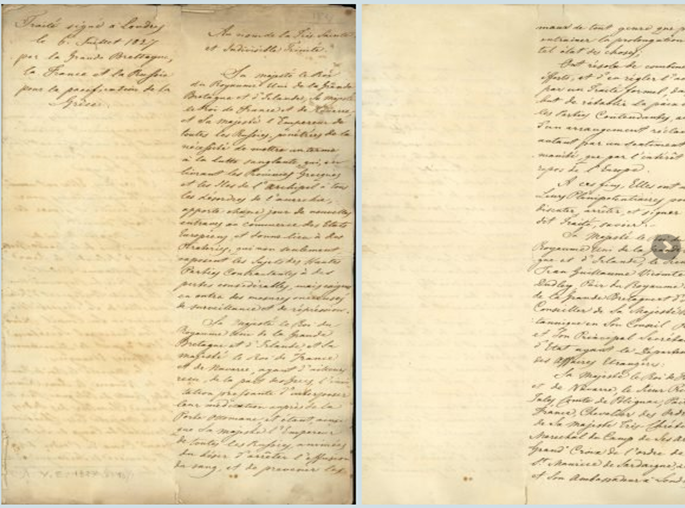 Traité signé à Londres
le 6. Juillet 1827
par la Grande Bretagne,
la France et la Russie
pour la pacification de la
Grèce.
Au nom de la Très Sainte
et Indivisible Trinité.
Sa Majesté le Roi
du Royaume Uni de la Grande
Bretagne et d'Irlande, Sa Majesté
le Roi de France et de Navarre,
et Sa Majesté l'Empereur de
toutes les Russies, pénétrés de la
nécessité de mettre un terme
à la lutte sanglante, qui, en
livrant les Provinces Grecques
et les Iles de l'Archipel à tous
les désordres de l'anarchie,
apporte chaque jour de nouvelles
entraves au commerce des Etats
Européens et donne lieu à des
Pirateries, qui non seulement
exposent les Sujets des Hautes
Parties Contractantes à des
pertes considérables, mais exigent
en outre des mesures onéreuses
de surveillance et de répression.
Sa Majesté le Roi du
Royaume Uni de la Grande
Bretagne et d'Irlande et Sa
Majesté le Roi de France
et de Navarre, ayant d'ailleurs
reçu, de la part des Grecs, l'invi
tation pressante d'interposer
leur médiation auprès de la
Porte Ottomane et étant, ainsi
que Sa Majesté l'Empereur
de toutes les Russies, animés
du désir d'arrêter l'effusion
du sang, et de prévenir les
maux de tout genre que p
entrainer la prolongation
tel état de choses,
Ont résolu de combiner
efforts, et d'en régler l'ac
par un Traité formel, da
but de rétablir la paix e
les Parties Contendantes, au
d'un arrangement réclam
autant par un sentiment
manité, que par l'intérêt
repos de l'Europe.
A ces fins, Elles ont n
Leurs Plénipotentiaires pou
discuter, arrêter, et signer
dit Traité, savoir:
Sa Majesté le
Royaume Uni de la Grande
gne et d'Irlande, le
Jean Guillaume Vicomte
Dudley Pair du Royaume
de la Grande Bretagne et d'I
Conseiller de Sa Majesté
tannique en Son Conseil P
et Son Principal Secrétai
d'Etat ayant le Départem
des Affaires Etrangères:
Sa Majesté le Roi de F
et de Navarre, le
Jules, Comte de Polignac, Pair
France, Chevalier des Ordr
de Sa Majesté Très Chrétie
Maréchal de Camp de Ses Ar
Grand' Croix de l'ordre de
St. Maurice de Sardaigne,
et Son Ambassadeur à Lond